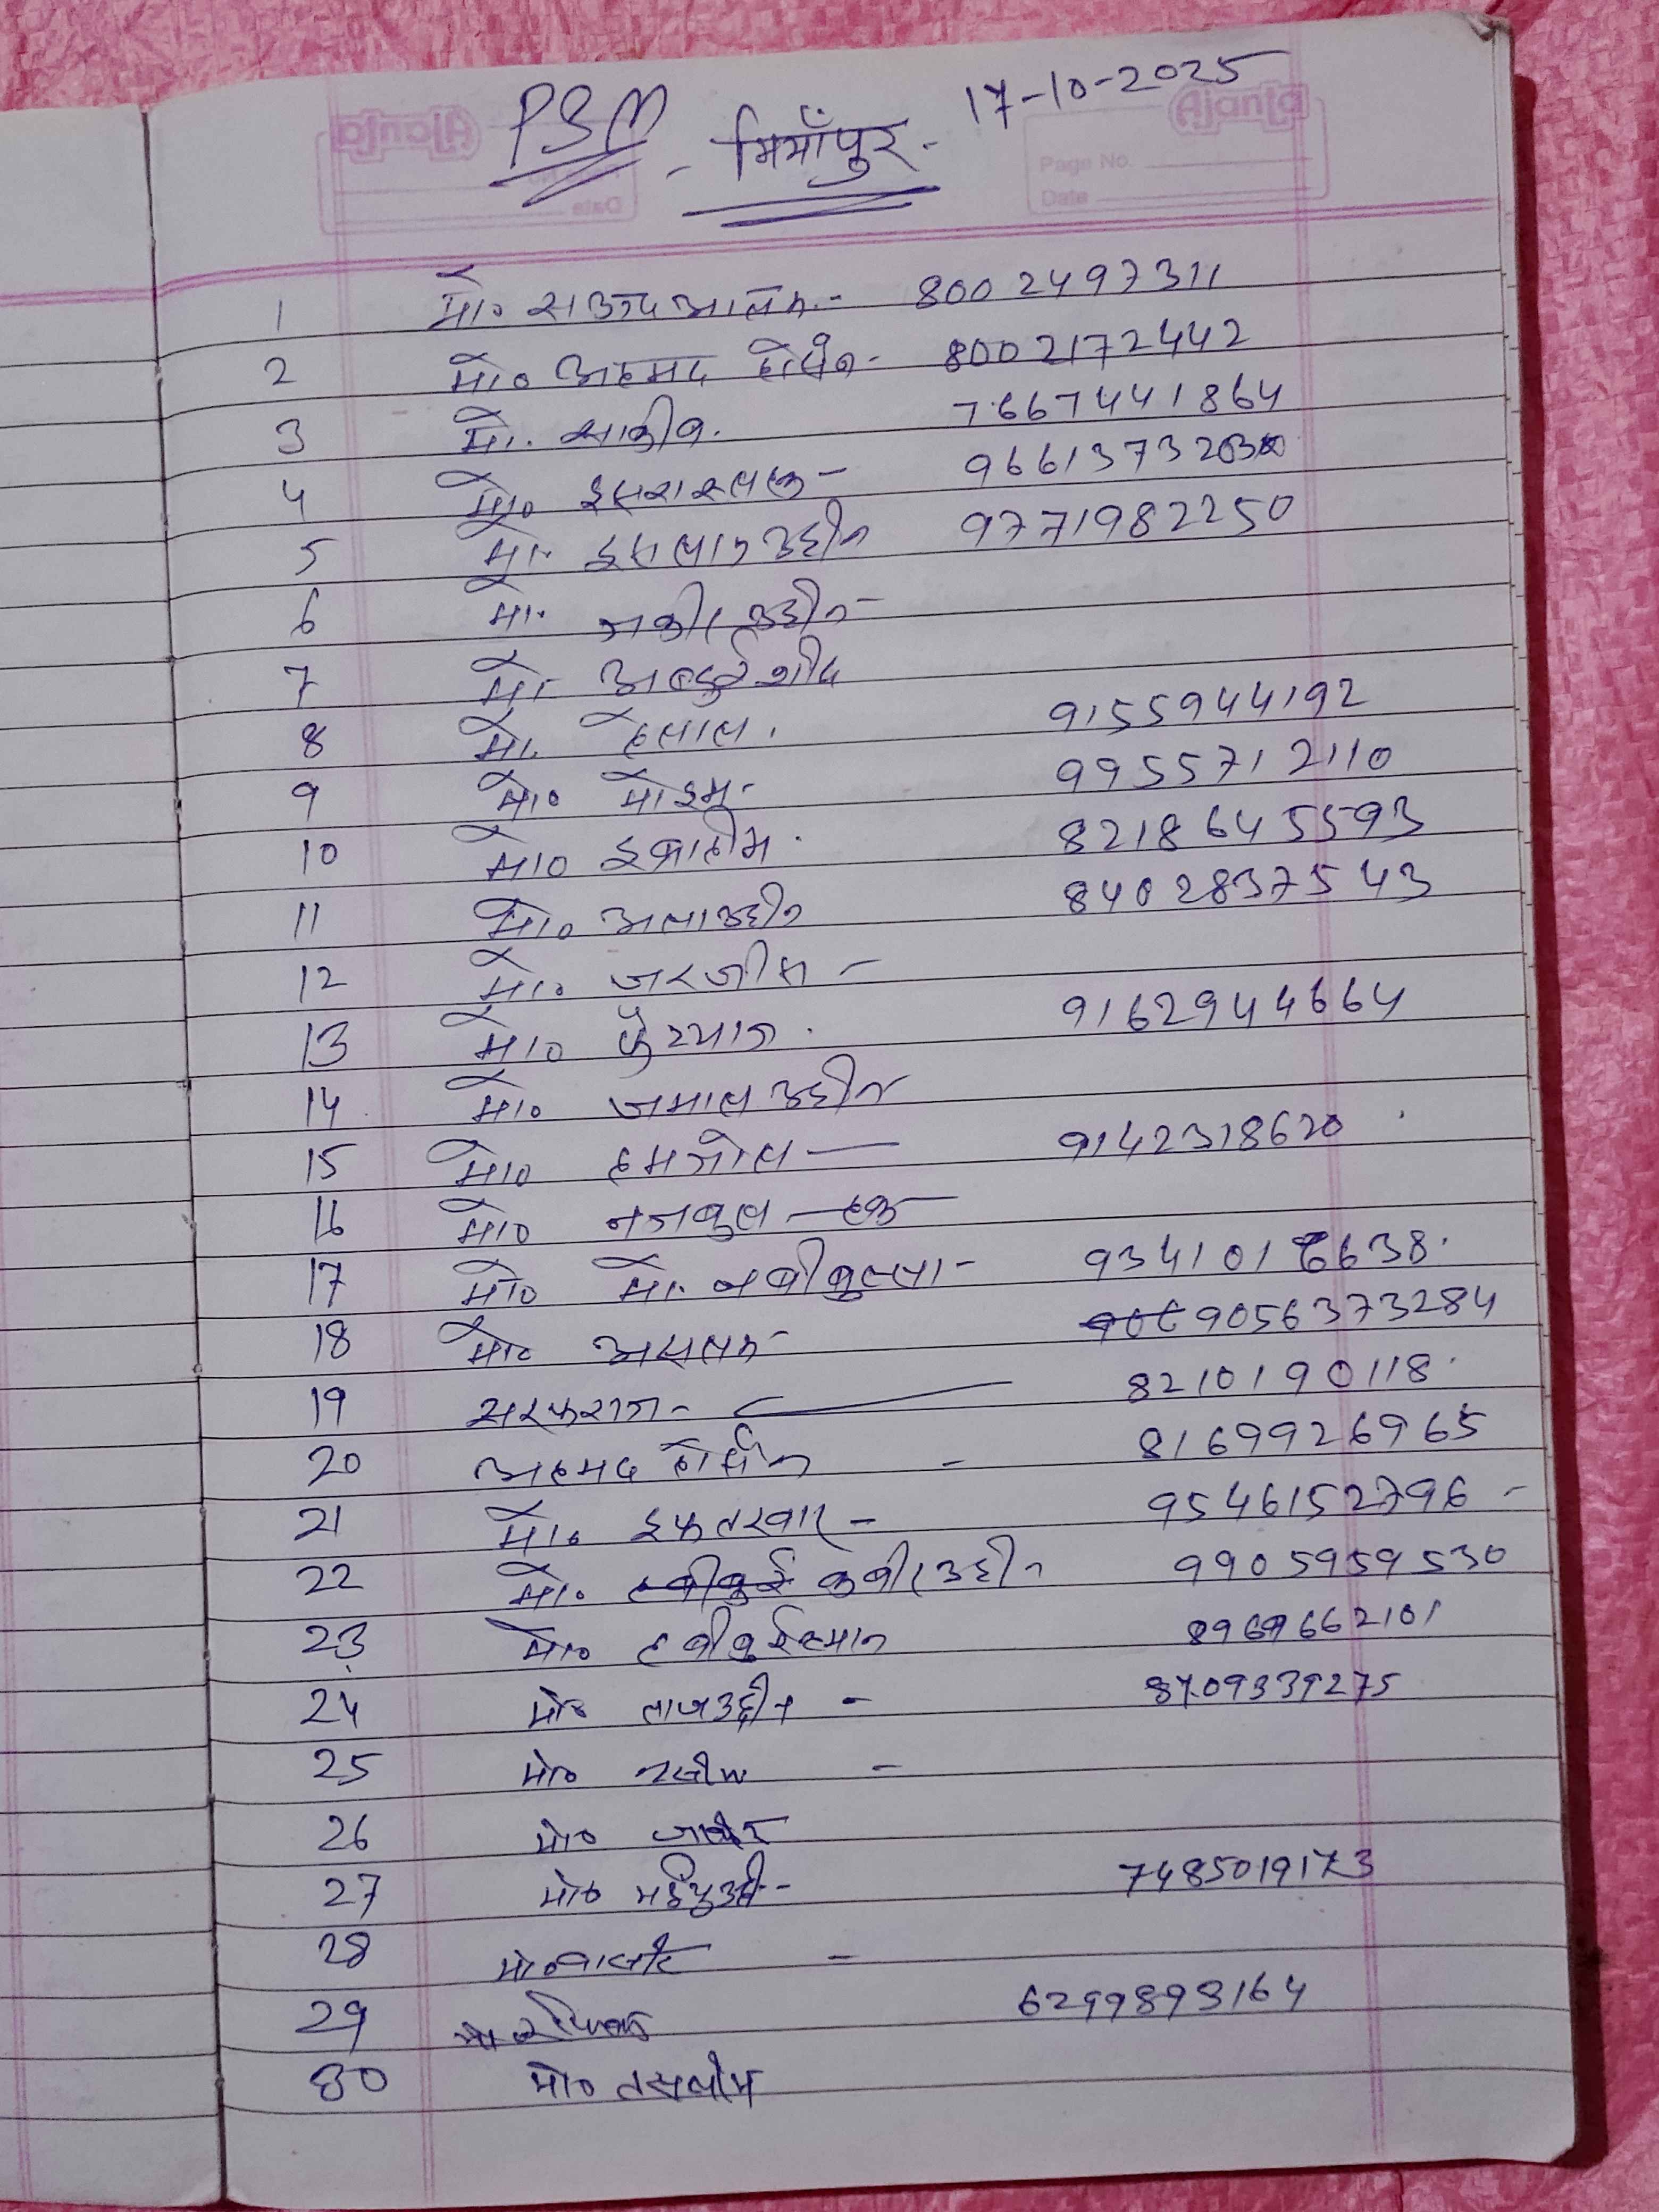 PBM - मियाँपुर - 17-10-2025
Ajanta
Page No.
Date
1 मो० आलम - 8002497311
2 मो० अहमद होसेन - 8002172442
3 मो. साकीब. 7667441864
4 मो० 966137320
5 मो. उद्दीन 9771982250
6 मो. उद्दीन -
7 मो. अब्दुर्रशीद
8 मो. हेलाल. 9155944192
9 मो० 9955712110
10 मो० इब्राहीम. 8218645593
11 मो० अलाउद्दीन 8402837543
12 मो० जरजीस -
13 मो० फैय्याज. 9162944664
14 मो० जमाल उद्दीन
15 मो० — 9142318620
16 मो० हक
17 मो० मो. - 9341016638.
18 मो० असलम - 9056373284
19 सरफराज - 8210190118.
20 अहमद होसेन - 8169926965
21 मो० इफतखार - 9546152796 -
22 मो० कबीरउद्दीन 9905959530
23 मो० हबीबुर्रहमान 8969662101
24 मो० ताजउद्दीन - 8709339275
25 मो० नसीम -
26 मो०
27 मो० 7485019173
28 मो० -
29 मो 6299893164
30 मो० तसलीम